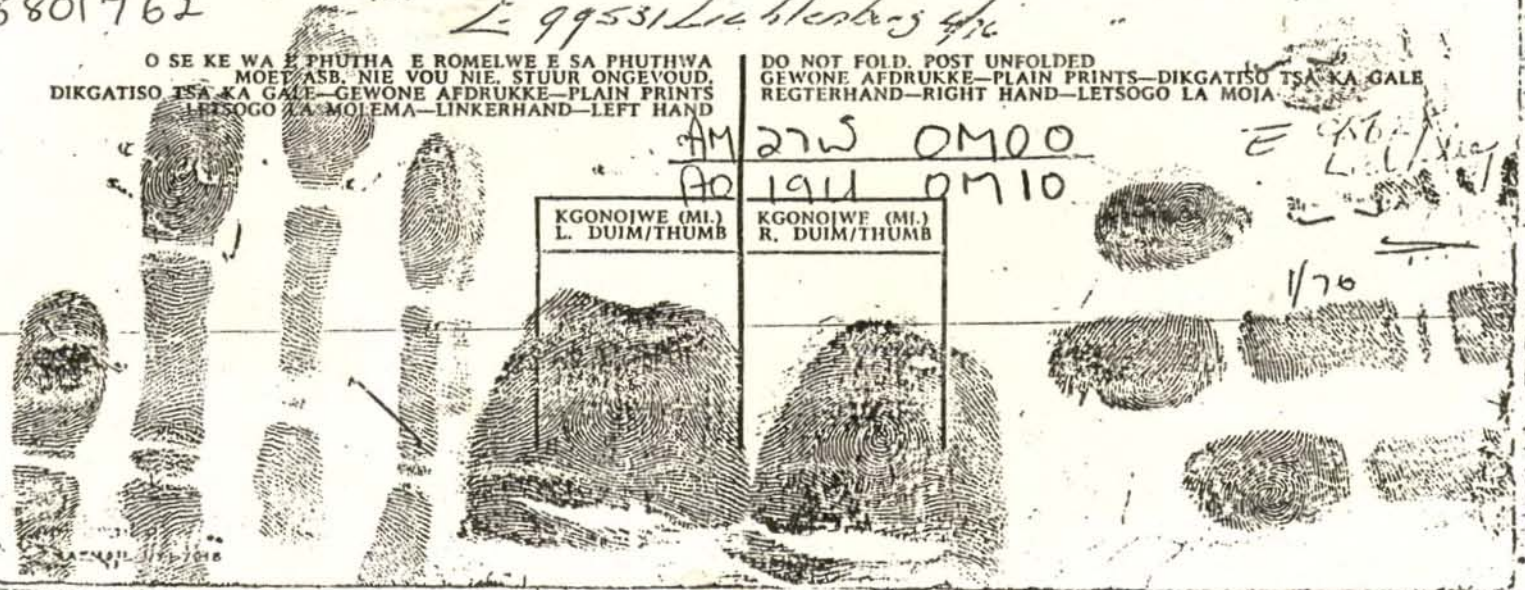 5801762
E 99531 Lichtenburg 4/76
O SE KE WA E PHUTHA E ROMELWE E SA PHUTHWA
MOET ASB. NIE VOU NIE. STUUR ONGEVOUD.
DIKGATISO TSA KA GALE—GEWONE AFDRUKKE—PLAIN PRINTS
LETSOGO LA MOLEMA—LINKERHAND—LEFT HAND
DO NOT FOLD. POST UNFOLDED
GEWONE AFDRUKKE—PLAIN PRINTS—DIKGATISO TSA KA GALE
REGTERHAND—RIGHT HAND—LETSOGO LA MOJA
AM 27W OMOO
AO 19U OM10
KGONOJWE (MI.)
L. DUIM/THUMB
KGONOJWE (MI.)
R. DUIM/THUMB
1/76